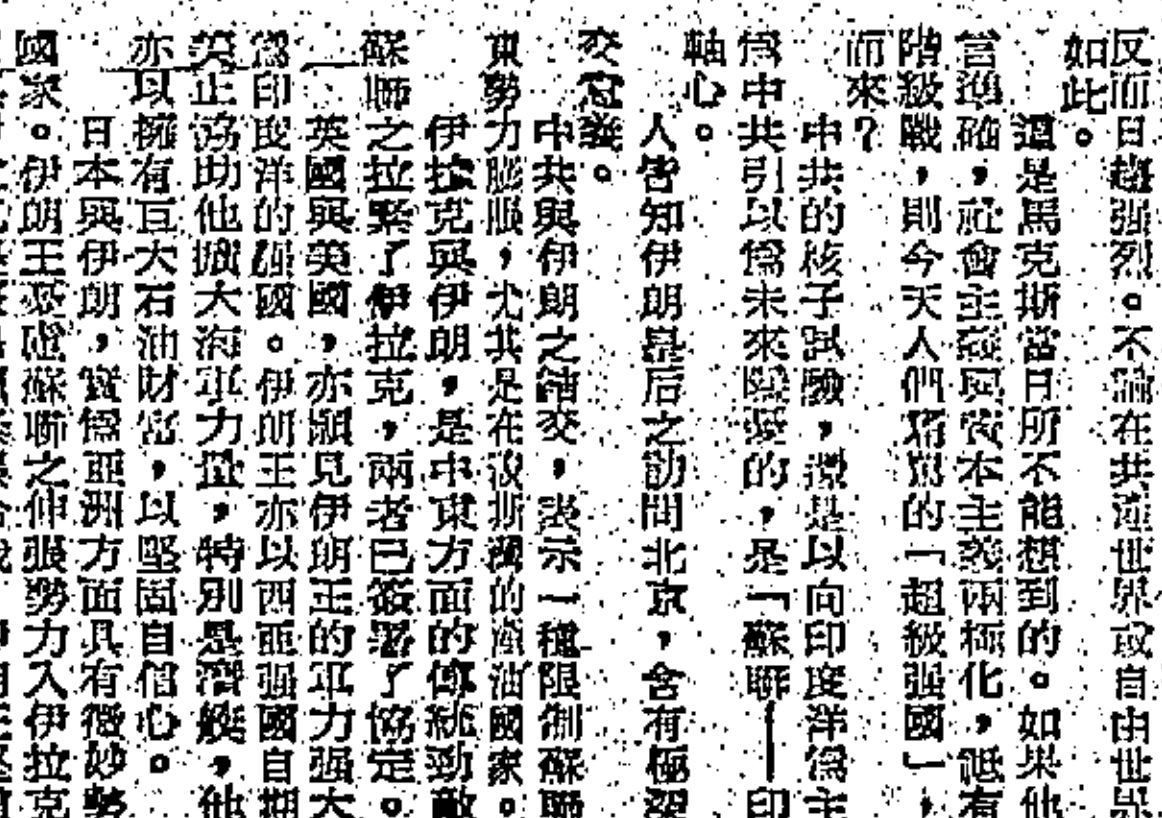 反而日趨强烈。不論在共產世界或自由世界
如此。
這是馬克斯當日所不能想到的。如果他
言準確，社會主義與資本主義兩極化，誕有
階級戰，則今天人們所罵的「超級强國」，
而來？
中共的核子試驗，還是以向印度洋為主
為中共引以為未來隱憂的，是「蘇聯——印
軸心。
人皆知伊朗皇后之訪問北京，含有極深
交意義。
中共與伊朗之結交，表示一種限制蘇聯
東勢力膨脹，尤其是在波斯灣的產油國家。
伊拉克與伊朗，是中東方面的傳統勁敵
蘇聯之拉緊了伊拉克，兩者已簽署了協定。
英國與美國，亦願見伊朗王的軍力强大
為印度洋的强國。伊朗王亦以西亞强國自期
英正協助他擴大海軍力量，特別是潛艇，他
亦以擁有巨大石油財富，以堅固自信心。
日本與伊朗，實為亞洲方面具有微妙勢
國家。伊朗王憂慮蘇聯之伸張勢力入伊拉克